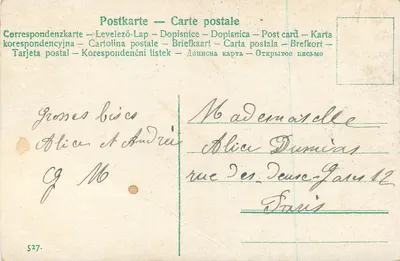 Postkarte — Carte postale
Correspondenzkarte — Levelező-Lap — Dopisnice — Dopisnica — Post card — Karta
korespondencyjna — Cartolina postale — Briefkaart — Carta postala — Brefkort —
Tarjeta postal — Korespondenční listek — Дописна карта — Открытое письмо
grosses bises
Alice et André
G M
Mademoiselle
Alice Duméras
rue des-deux-Gares 12
Paris
527.